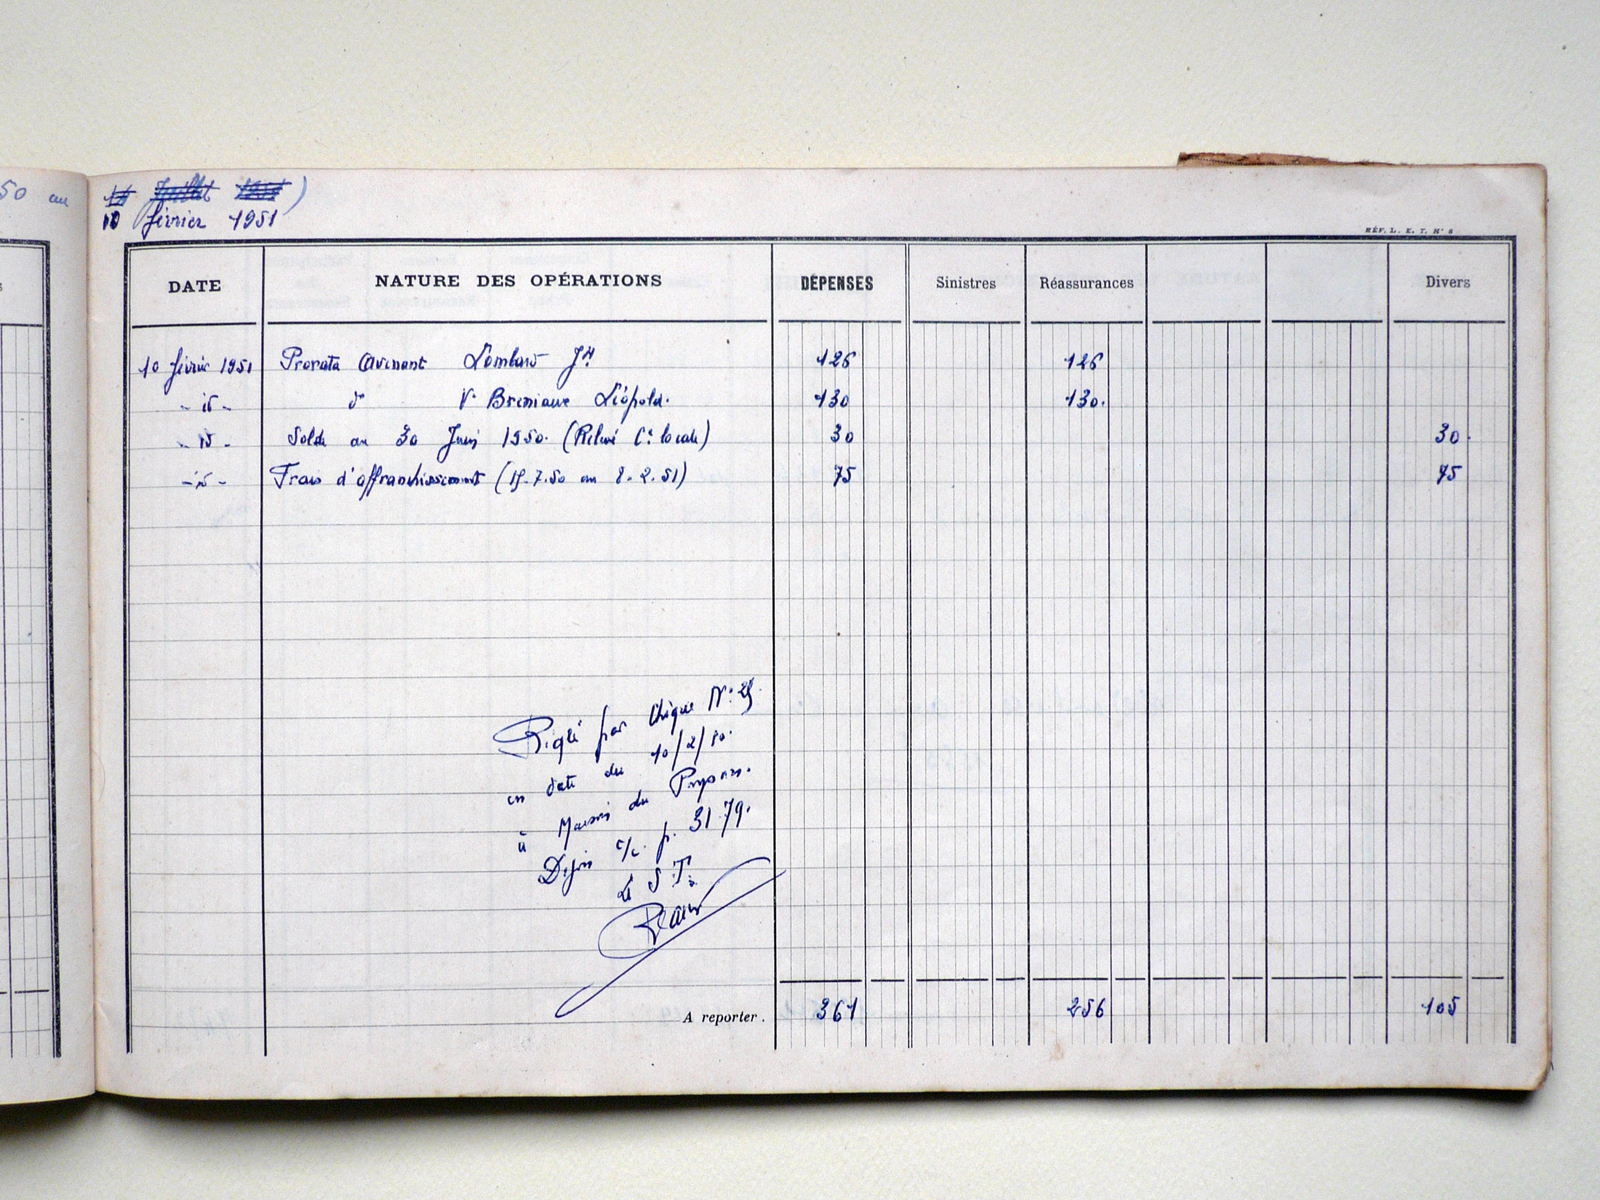 50 au
15 Juillet 1951 )
10 février 1951
RÉV. L. E. T. N° 8
DATE NATURE DES OPÉRATIONS DÉPENSES Sinistres Réassurances Divers
10 février 1951 Prorata Avenant Lombard Jh 126 126
- id - d° Ve Breniaux Léopold. 130 130.
- id - Solde au 30 Juin 1950. (Relevé Cse locale) 30 30.
- id - Frais d'affranchissement (15.7.50 au 8.2.51) 75 75
Réglé par chèque N°
en date du 10/2/50.
à Maison du Paysan.
Dijon c/c. p. 3179.
Le S T.
A reporter. 361 256 105